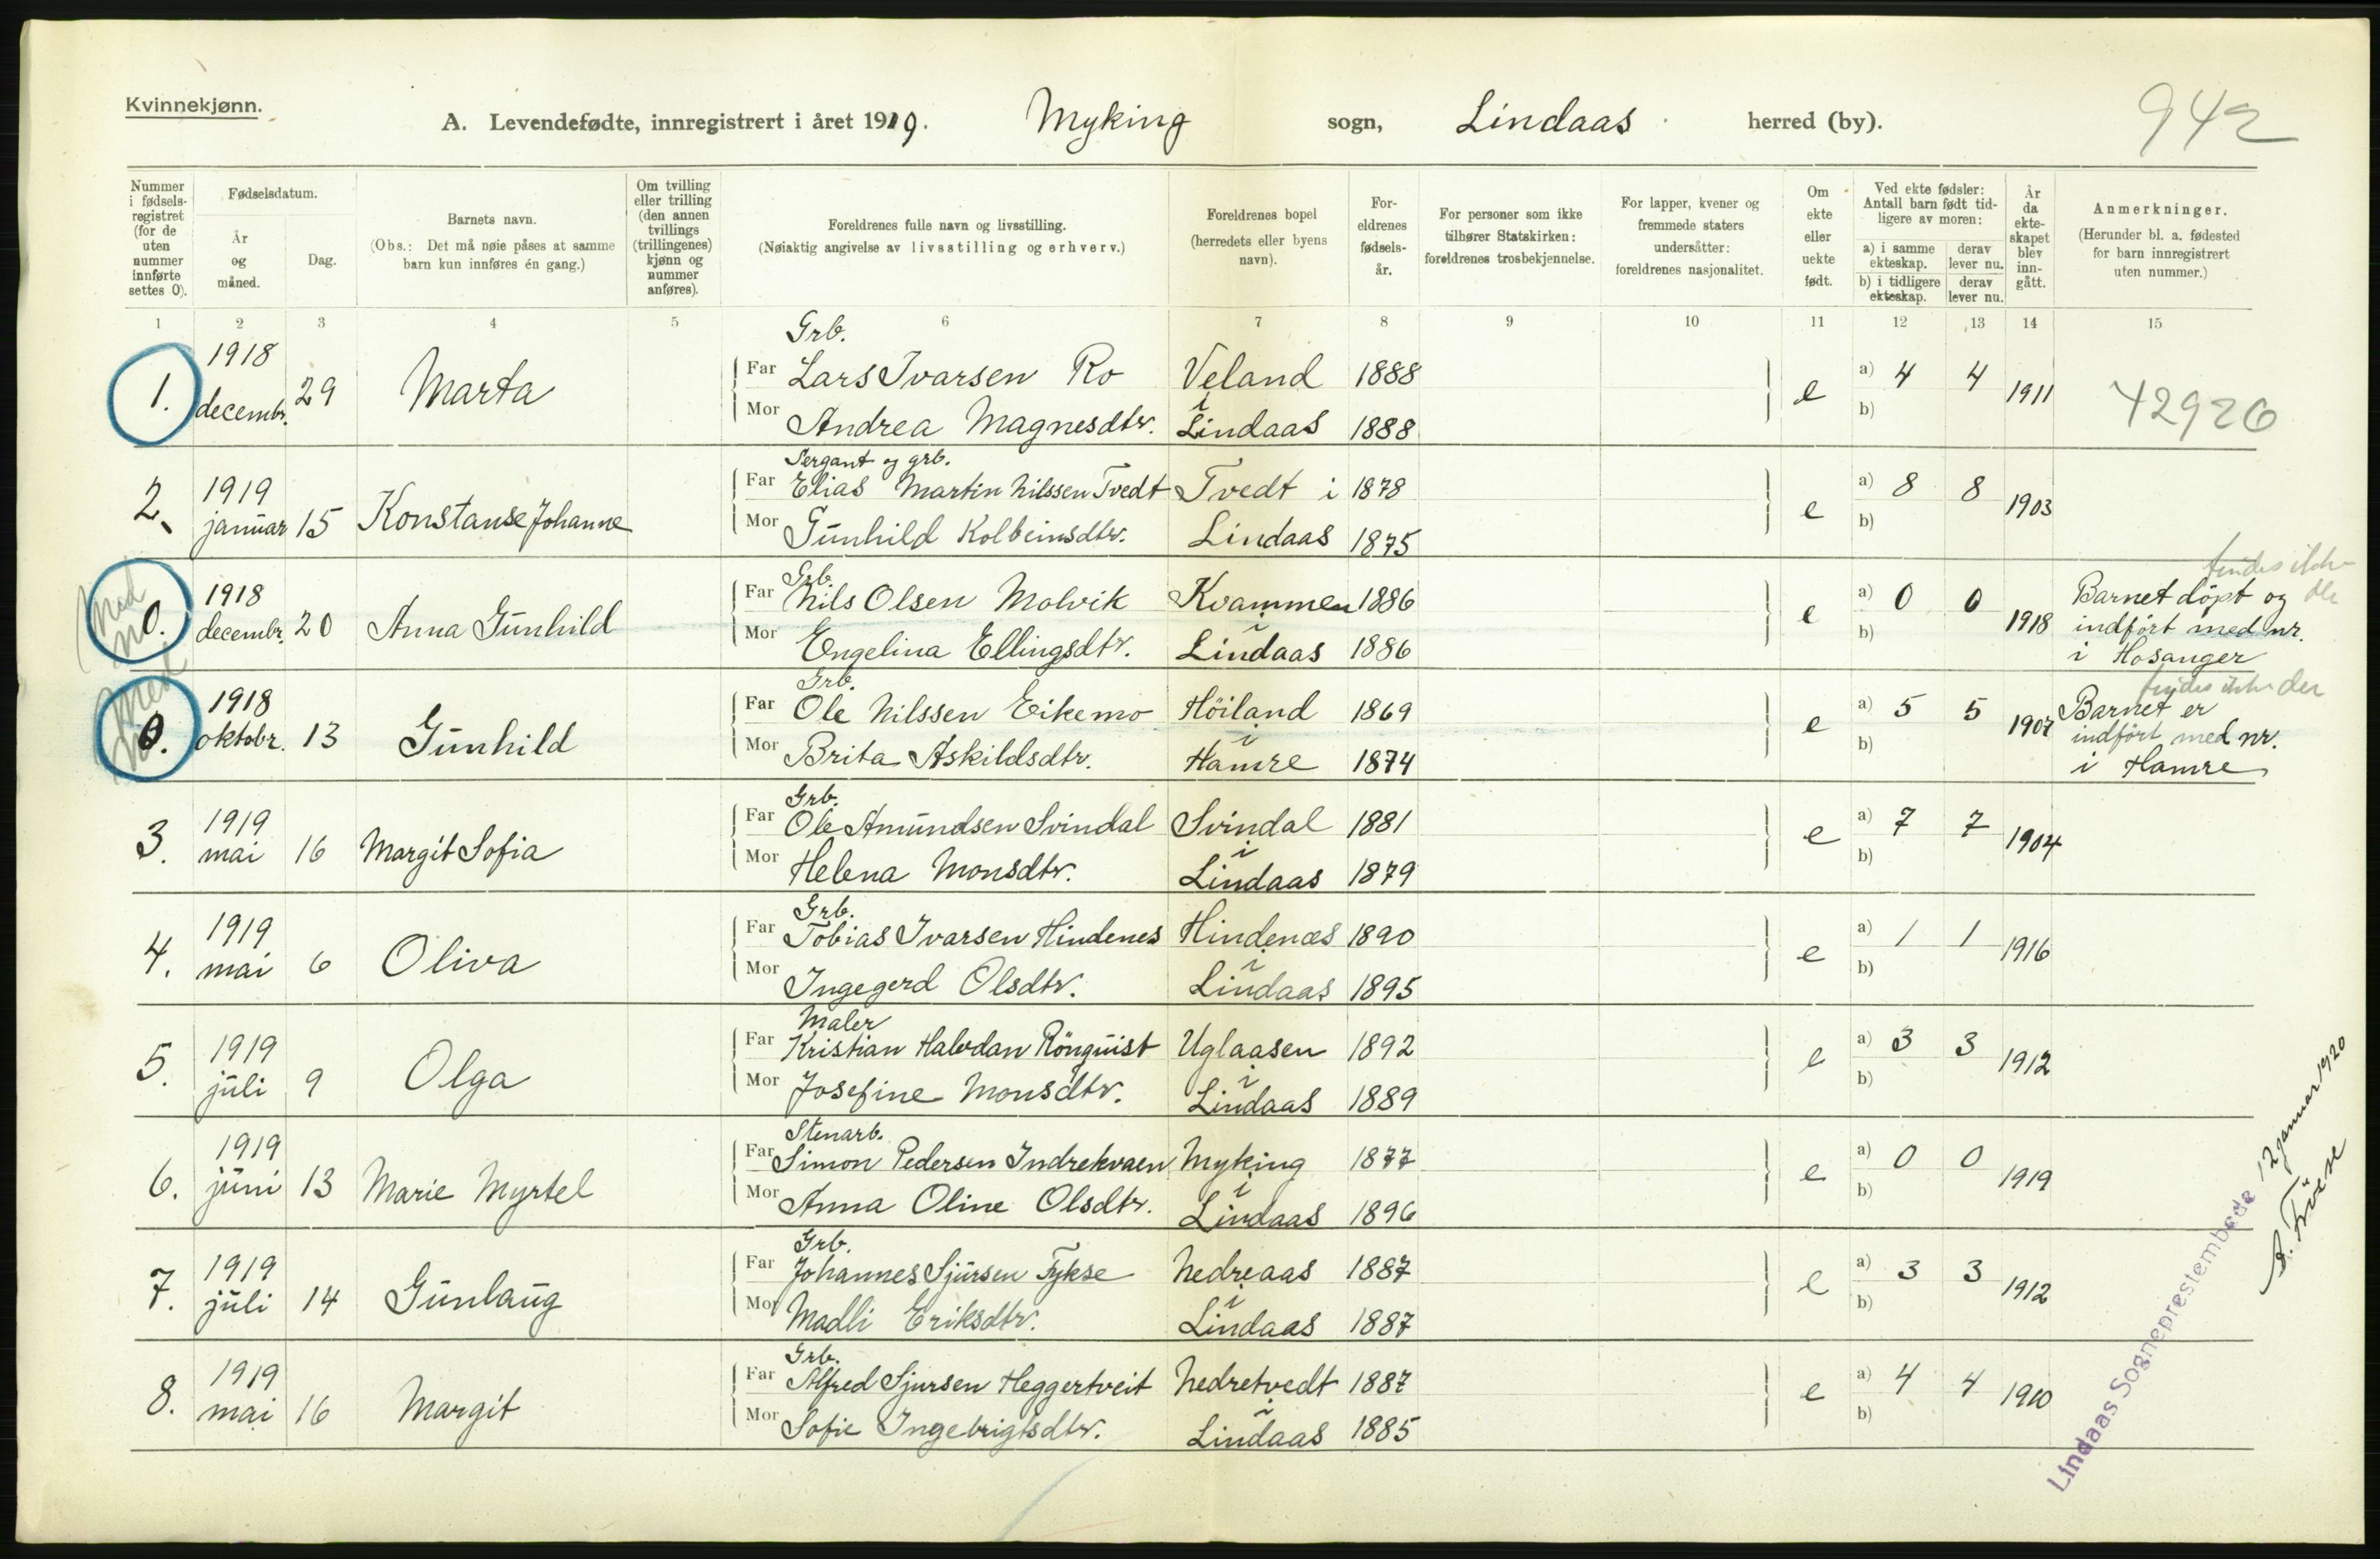 Kvinnekjønn.
A. Levendefødte, innregistrert i året 1919. Myking sogn, Lindaas herred (by).
942
Nummer i fødselsregistret (for de uten nummer innførte settes 0).
Fødselsdatum.
År og måned.
Dag.
Barnets navn.
(Obs.: Det må nøie påses at samme barn kun innføres én gang.)
Om tvilling eller trilling (den annen tvillings (trillingenes) kjønn og nummer anføres).
Foreldrenes fulle navn og livsstilling.
(Nøiaktig angivelse av livsstilling og erhverv.)
Foreldrenes bopel (herredets eller byens navn).
Foreldrenes fødselsår.
For personer som ikke tilhører Statskirken: foreldrenes trosbekjennelse.
For lapper, kvener og fremmede staters undersåtter: foreldrenes nasjonalitet.
Om ekte eller uekte født.
Ved ekte fødsler: Antall barn født tidligere av moren:
a) i samme ekteskap. derav lever nu.
b) i tidligere ekteskap. derav lever nu.
År da ekteskapet blev inngått.
Anmerkninger.
(Herunder bl. a. fødested for barn innregistrert uten nummer.)
1 2 3 4 5 6 7 8 9 10 11 12 13 14 15
Grb.
1. 1918 decembr. 29 Marta Far Lars Ivarsen Ro Veland 1888 e a) 4 4 1911 42926
Mor Andrea Magnesdtr. i Lindaas 1888 b)
Sergant og grb.
2. 1919 januar 15 Konstanse Johanne Far Elias Martin Nilssen Tvedt Tvedt i 1878 e a) 8 8 1903
Mor Gunhild Kolbeinsdtr. Lindaas 1875 b)
Grb.
Med no.
0. 1918 decembr. 20 Anna Gunhild Far Nils Olsen Molvik Kvammen 1886 e a) 0 0 1918 Barnet döpt og
Mor Engelina Ellingsdtr. i Lindaas 1886 b) indført med nr.
i Hosanger
findes ikke
Grb.
Med
0. 1918 oktobr. 13 Gunhild Far Ole Nilssen Eikemo Höiland 1869 e a) 5 5 1907 Barnet er
Mor Brita Askildsdtr. i Hamre 1874 b) indført med nr.
i Hamre
findes ikke der
Grb.
3. 1919 mai 16 Margit Sofia Far Ole Amundsen Svindal Svindal 1881 e a) 7 7 1904
Mor Helena Monsdtr. i Lindaas 1879 b)
Grb.
4. 1919 mai 6 Oliva Far Tobias Ivarsen Hindenes Hindenæs 1890 e a) 1 1 1916
Mor Ingegerd Olsdtr. i Lindaas 1895 b)
Maler
5. 1919 juli 9 Olga Far Kristian Halvdan Rönquist Uglaasen 1892 e a) 3 3 1912
Mor Josefine Monsdtr. i Lindaas 1889 b)
Stenarb.
6. 1919 juni 13 Marie Myrtel Far Simon Pedersen Indrekvaen Myking 1877 e a) 0 0 1919
Mor Anna Oline Olsdtr. i Lindaas 1896 b)
Grb.
7. 1919 juli 14 Gunlaug Far Johannes Sjursen Fykse Nedreaas 1887 e a) 3 3 1912
Mor Madli Eriksdtr. i Lindaas 1887 b)
Grb.
8. 1919 mai 16 Margit Far Alfred Sjursen Heggertveit Nedretvedt 1887 e a) 4 4 1910
Mor Sofie Ingebrigtsdtr. i Lindaas 1885 b)
Lindaas Sogneprestembede 12 januar 1920